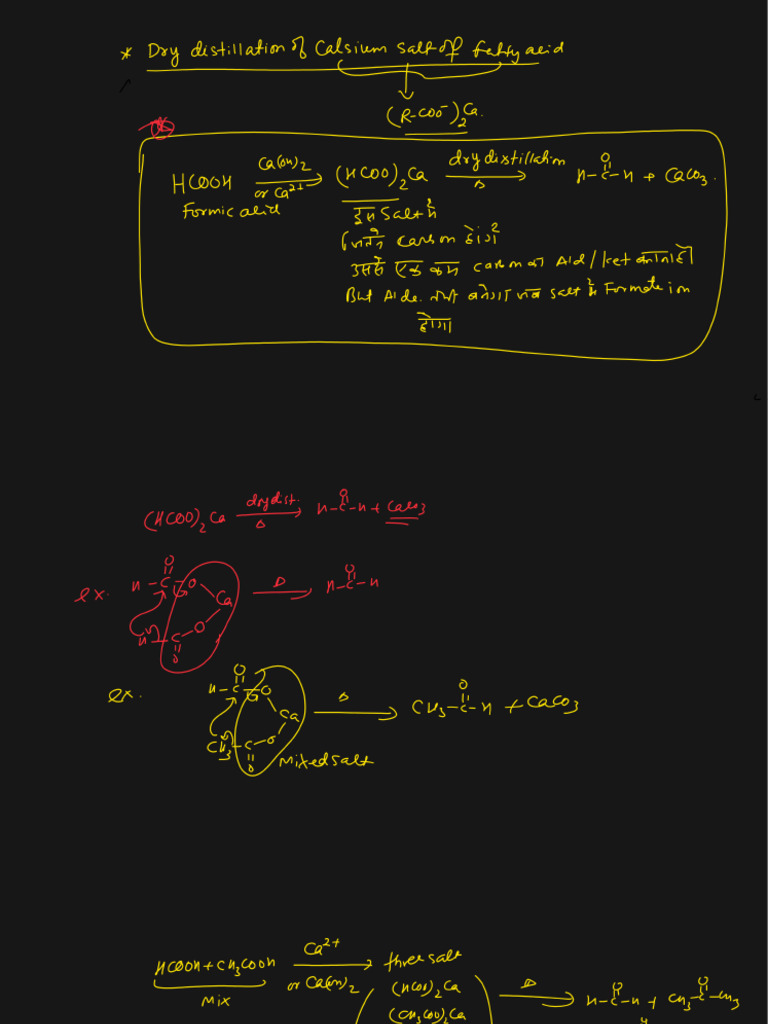 * Dry distillation of Calsium salt of fatty acid
(R-COO⁻)₂Ca.
HCOOH Ca(OH)₂ or Ca²⁺ → (HCOO)₂Ca dry distillation Δ → H-C(=O)-H + CaCO₃.
Formic acid
इस Salt में
जितने carbon होगा
उससे एक कम carbon का Ald/ket बनाता है
But Alde. तभी बनेगा जब salt में Formate ion
होगा
(HCOO)₂Ca dry dist. Δ → H-C(=O)-H + CaCO₃
ex. H-C(=O)-O Ca O-C(=O)-H Δ → H-C(=O)-H
ex. H-C(=O)-O Ca O-C(=O)-CH₃ Δ → CH₃-C(=O)-H + CaCO₃
Mixed salt
HCOOH + CH₃COOH Ca²⁺ or Ca(OH)₂ → three salt
Mix
(HCOO)₂Ca Δ → H-C(=O)-H + CH₃-C(=O)-CH₃
(CH₃COO)₂Ca